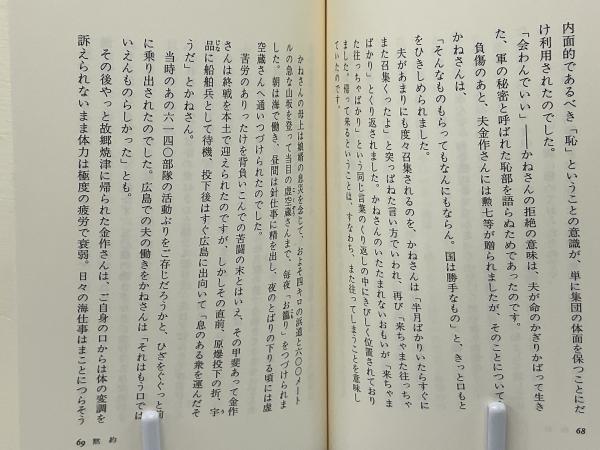 内面的であるべき「恥」ということの意識が、単に集団の体面を保つことにだ
け利用されたのでした。
「会わんでいい」――かねさんの拒絶の意味は、夫が命のかぎりかばって生き
た、軍の秘密と呼ばれた恥部を語らぬためであったのです。
負傷のあと、夫金作さんには勲七等が贈られましたが、そのことについて
かねさんは、
「そんなものもらってもなんにもならん。国は勝手なもの」と、きっと口もと
をひきしめられました。
夫があまりにも度々召集されるのを、かねさんは「半月ばかりいたらすぐに
また召集くったよ」と突っぱねた言い方でいわれ、再び「来ちゃまた往っちゃ
ばかり」とくり返されました。かねさんのいたたまれないおもいが「来ちゃま
た往っちゃばかり」という同じ言葉のくり返しの中にきびしく位置されており
ました。帰って来るということは、すなわち、また往ってしまうことを意味し
ていたのです。
68
かねさんの母上は娘婿の息災を念じて、およそ四キロの浜道と六〇〇メート
ルの急な山坂を登って当目の虚空蔵さんまで、毎夜「お籠り」をつづけられま
した。朝は海で働き、昼間は針仕事に精を出し、夜のとばりの下りる頃には虚
空蔵さんへ通いつづけられたのでした。
苦労のありったけを背負いこんでの苦闘の末とはいえ、その甲斐あって金作
さんは終戦を本土で迎えられたのですが、しかしその直前、原爆投下の折、宇
品に船舶兵として待機、投下後はすぐ広島に出向いて「息のある衆を運んだそ
うだ」とかねさん。
当時のあの六一四〇部隊の活動ぶりをご存じだろうかと、ひざをぐぐっと前
に乗り出されたのでした。広島での夫の働きをかねさんは「それはもう口では
いえんものらしかった」とも。
その後やっと故郷焼津に帰られた金作さんは、ご自身の口からは体の変調を
訴えられないまま体力は極度の疲労で衰弱。日々の海仕事はまことにつらそう
69 黙約